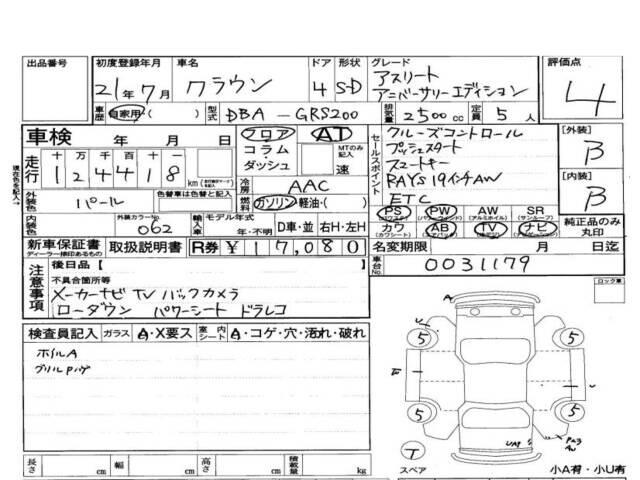 出品番号 初度登録年月 車名 ドア 形状 グレード 評価点
21年7月 クラウン 4 S-D アスリート
アニバーサリーエディション
4
車歴 自家用( ) 型式 DBA-GRS200 排気量 2500cc 定員 5人
車検 年 月 日 フロア AT
コラム MTのみ記入
ダッシュ 速
走行 十万千百十一
124418 km
冷房 AAC
外装色 パール 色替車は色替と記入 燃料 ガソリン・軽油・( )
内装色 外装カラーNo. 062 輸入車 モデル年式 年・不明 D車・並 右H・左H
セールスポイント
クルーズコントロール
プッシュスタート
スマートキー
RAYS19インチAW
ETC
[外装] B
[内装] B
PS PW AW SR
(パワーウィンド) (アルミホイル) (サンルーフ)
カワ AB TV ナビ
(カワシート)
純正品のみ丸印
新車保証書 取扱説明書 R券 ¥17,080 名変期限 月 日迄
ディーラー捺印あるもの
車台No. 0031179
注意事項 後日品【 】
不具合箇所等
メーカーナビ TV バックカメラ
ローダウン パワーシート ドラレコ
ロック車
検査員記入 ガラス A・X要ス 室内シート A・コゲ・穴・汚れ・破れ
ホイルA
グリルPハゲ
A
U
E
5 5
5 5
U
UA3 S
T
スペア 小A有・小U有
長さ cm 幅 cm 高さ cm 積載量 kg